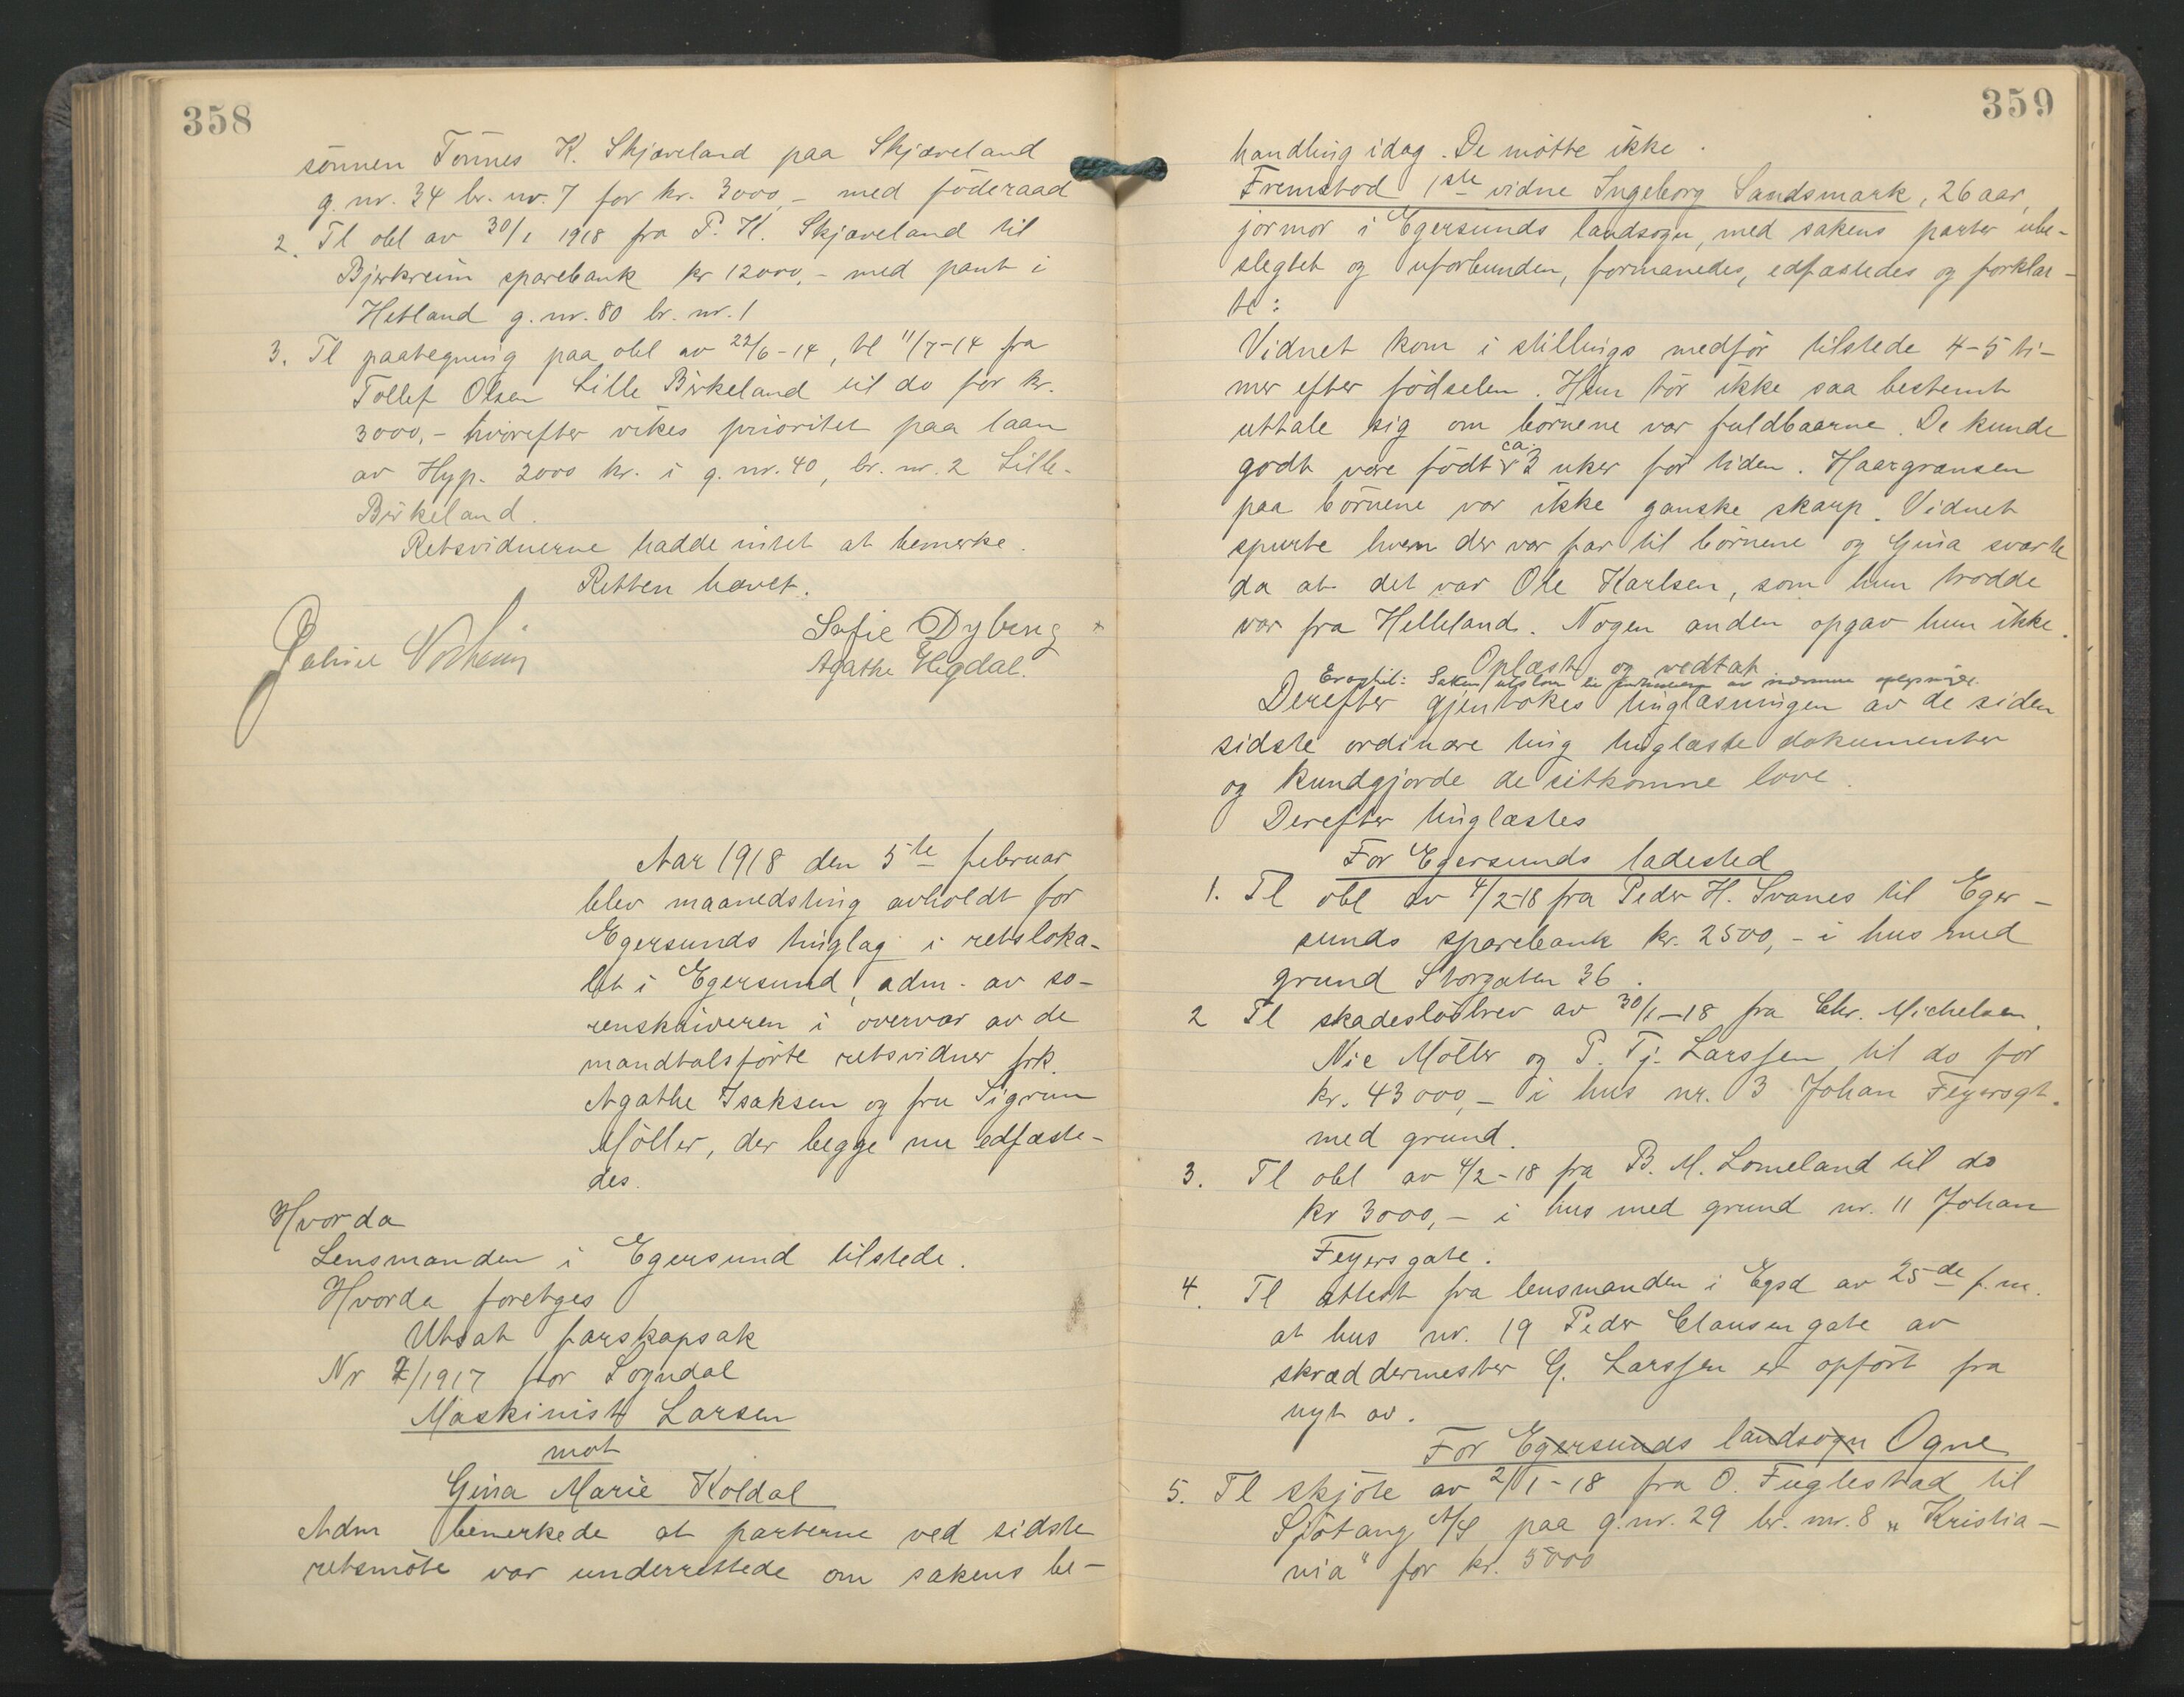 358
sönnen Tönnes K. Skjæveland paa Skjæveland
g. nr. 34 br. nr. 7 for kr. 3000,- med föderaad
2. Tl obl av 30/1 1918 fra P. H. Skjæveland til
Bjerkreim sparebank kr 12000,- med pant i
Hetland g. nr. 80 br. nr. 1
3. Tl paategning paa obl av 22/6-14, tl 11/7-14 fra
Tollef Olsen Lille Birkeland til do for kr.
3000,- hvorefter vikes prioritet paa laan
av Hyp. 2000 kr. i g. nr. 40, br. nr. 2 Lille-
Birkeland.
Retsvidnerne hadde intet at bemerke.
Retten hævet.
Sofie Dybing
Agathe Hegdal.
Aar 1918 den 5te februar
blev maanedsting avholdt for
Egersunds tinglag i retsloka-
let i Egersund, adm. av so-
renskriveren i overvær av de
mandtalsförte retsvidner frk.
Agathe Isaksen og fru Sigrun
Möller, der begge nu edfæste-
des.
Hvorda
Lensmanden i Egersund tilstede.
Hvorda foretges
Utsat farskapsak
Nr 7/1917 for Sogndal
Maskinist Larsen
mot
Gina Marie Koldal
Adm bemerkede at parterne ved sidste
retsmöte var underrettede om sakens be-
359
handling idag. De mötte ikke.
Fremstod 1ste vidne Ingeborg Sandsmark, 26 aar,
jormor i Egersunds landsogn, med sakens parter ube-
slegtet og uforbunden, formanedes, edfæstedes og forklar-
te:
Vidnet kom i stillings medför tilstede 4-5 ti-
mer efter födselen. Hun tör ikke saa bestemt
uttale sig om börnene var fuldbaarne. De kunde
godt være födt ca. 3 uker för tiden. Haargrænsen
paa börnene var ikke ganske skarp. Vidnet
spurte hvem der var far til börnene og Gina svarte
da at det var Ole Karlsen, som hun trodde
var fra Helleland. Nogen anden opgav hun ikke.
Oplæst og vedtat
Saken
Derefter gjentokes tinglæsningen av de siden
sidste ordinære ting tinglæste dokumenter
og kundgjorde de utkomne love.
Derefter tinglæstes
For Egersunds ladested
1. Tl obl av 4/2-18 fra Peder H. Svanes til Eger-
sunds sparebank kr. 2500,- i hus med
grund Storgaten 36.
2 Tl skadeslösbrev av 30/1-18 fra Chr. Michelsen.
Nic Möller og P. Tj. Larssen til do for
kr. 43000,- i hus nr. 3 Johan Feyersgt.
med grund.
3. Tl obl av 4/2-18 fra B. M. Lomeland til do
kr 3000,- i hus med grund nr. 11 Johan
Feyersgate.
4. Tl attest fra lensmanden i Egsd av 25de f.m.
at hus nr. 19 Peder Clausen gate av
skræddermester G. Larssen er opfört fra
nyt av.
For Egersunds landsogn Ogne
5. Tl skjöte av 2/1-18 fra O. Fuglestad til
Sjötang A/S paa g. nr. 29 br. nr. 8 "Kristia-
nia" for kr. 5000